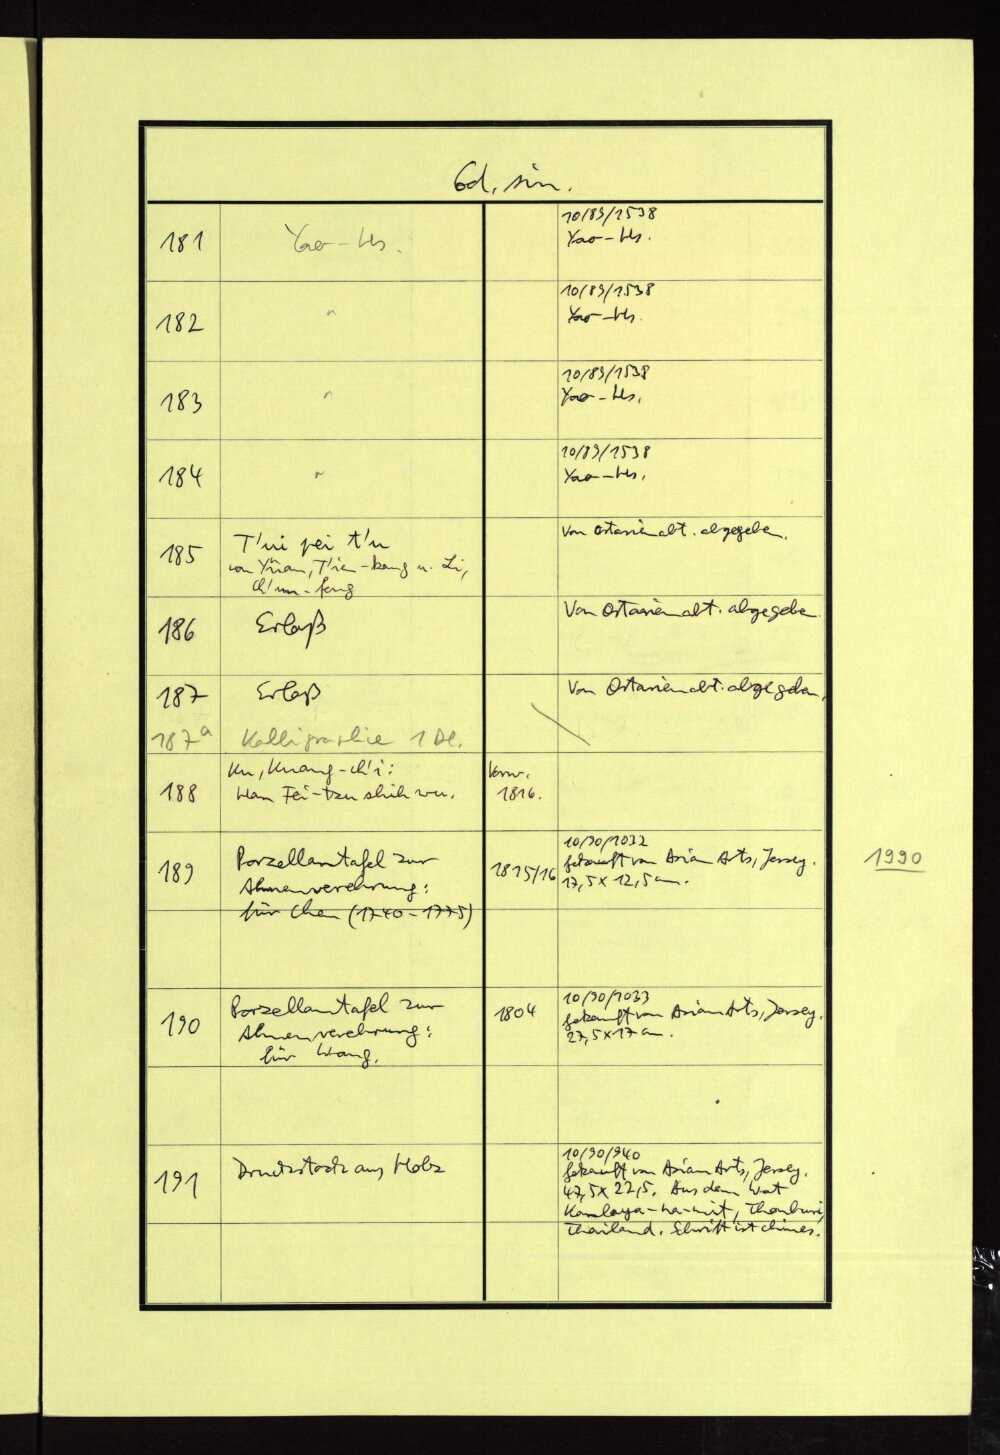 Cod. sin.
181 Yao-Hs. 10/89/1538
Yao-Hs.
182 " 10/89/1538
Yao-Hs.
183 " 10/89/1538
Yao-Hs.
184 " 10/89/1538
Yao-Hs.
185 T'ui pei t'u Von Ostasienabt. abgegeben.
von Yüan, T'ien-kang u. Li,
Ch'un-feng
186 Erlaß Von Ostasienabt. abgegeben.
187 Erlaß Von Ostasienabt. abgegeben.
187a Kalligraphie 1 Bl.
188 Ku, Kuang-ch'i: Vorw.
Han Fei-tzu shih wu. 1816.
189 Porzellantafel zur 1815/16 10/90/1032
Ahnenverehrung: gekauft von Asian Arts, Jersey.
für Chen (1740-1775) 17,5 x 12,5 cm.
1990
190 Porzellantafel zur 1804 10/90/1033
Ahnenverehrung: gekauft von Asian Arts, Jersey.
für Wang. 27,5 x 17 cm.
191 Druckstock aus Holz 10/90/940
gekauft von Asian Arts, Jersey.
47,5 x 22,5. Aus dem Wat
Kanlaya-na-mit, Thonburi,
Thailand. Schrift ist chines.